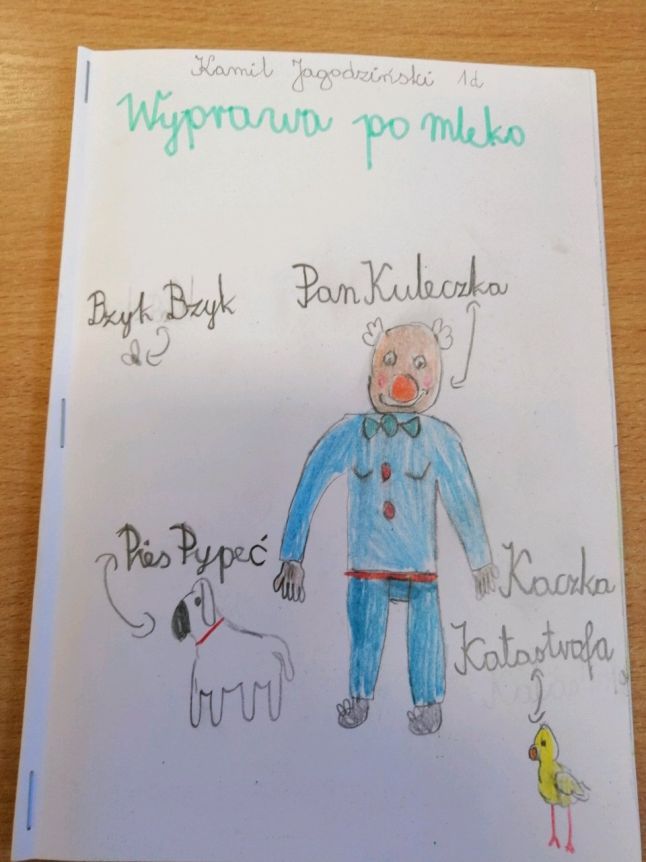 Kamil Jagodziński 1d
Wyprawa po mleko
Bzyk Bzyk
Pan Kuleczka
Pies Pypeć
Kaczka
Katastrofa